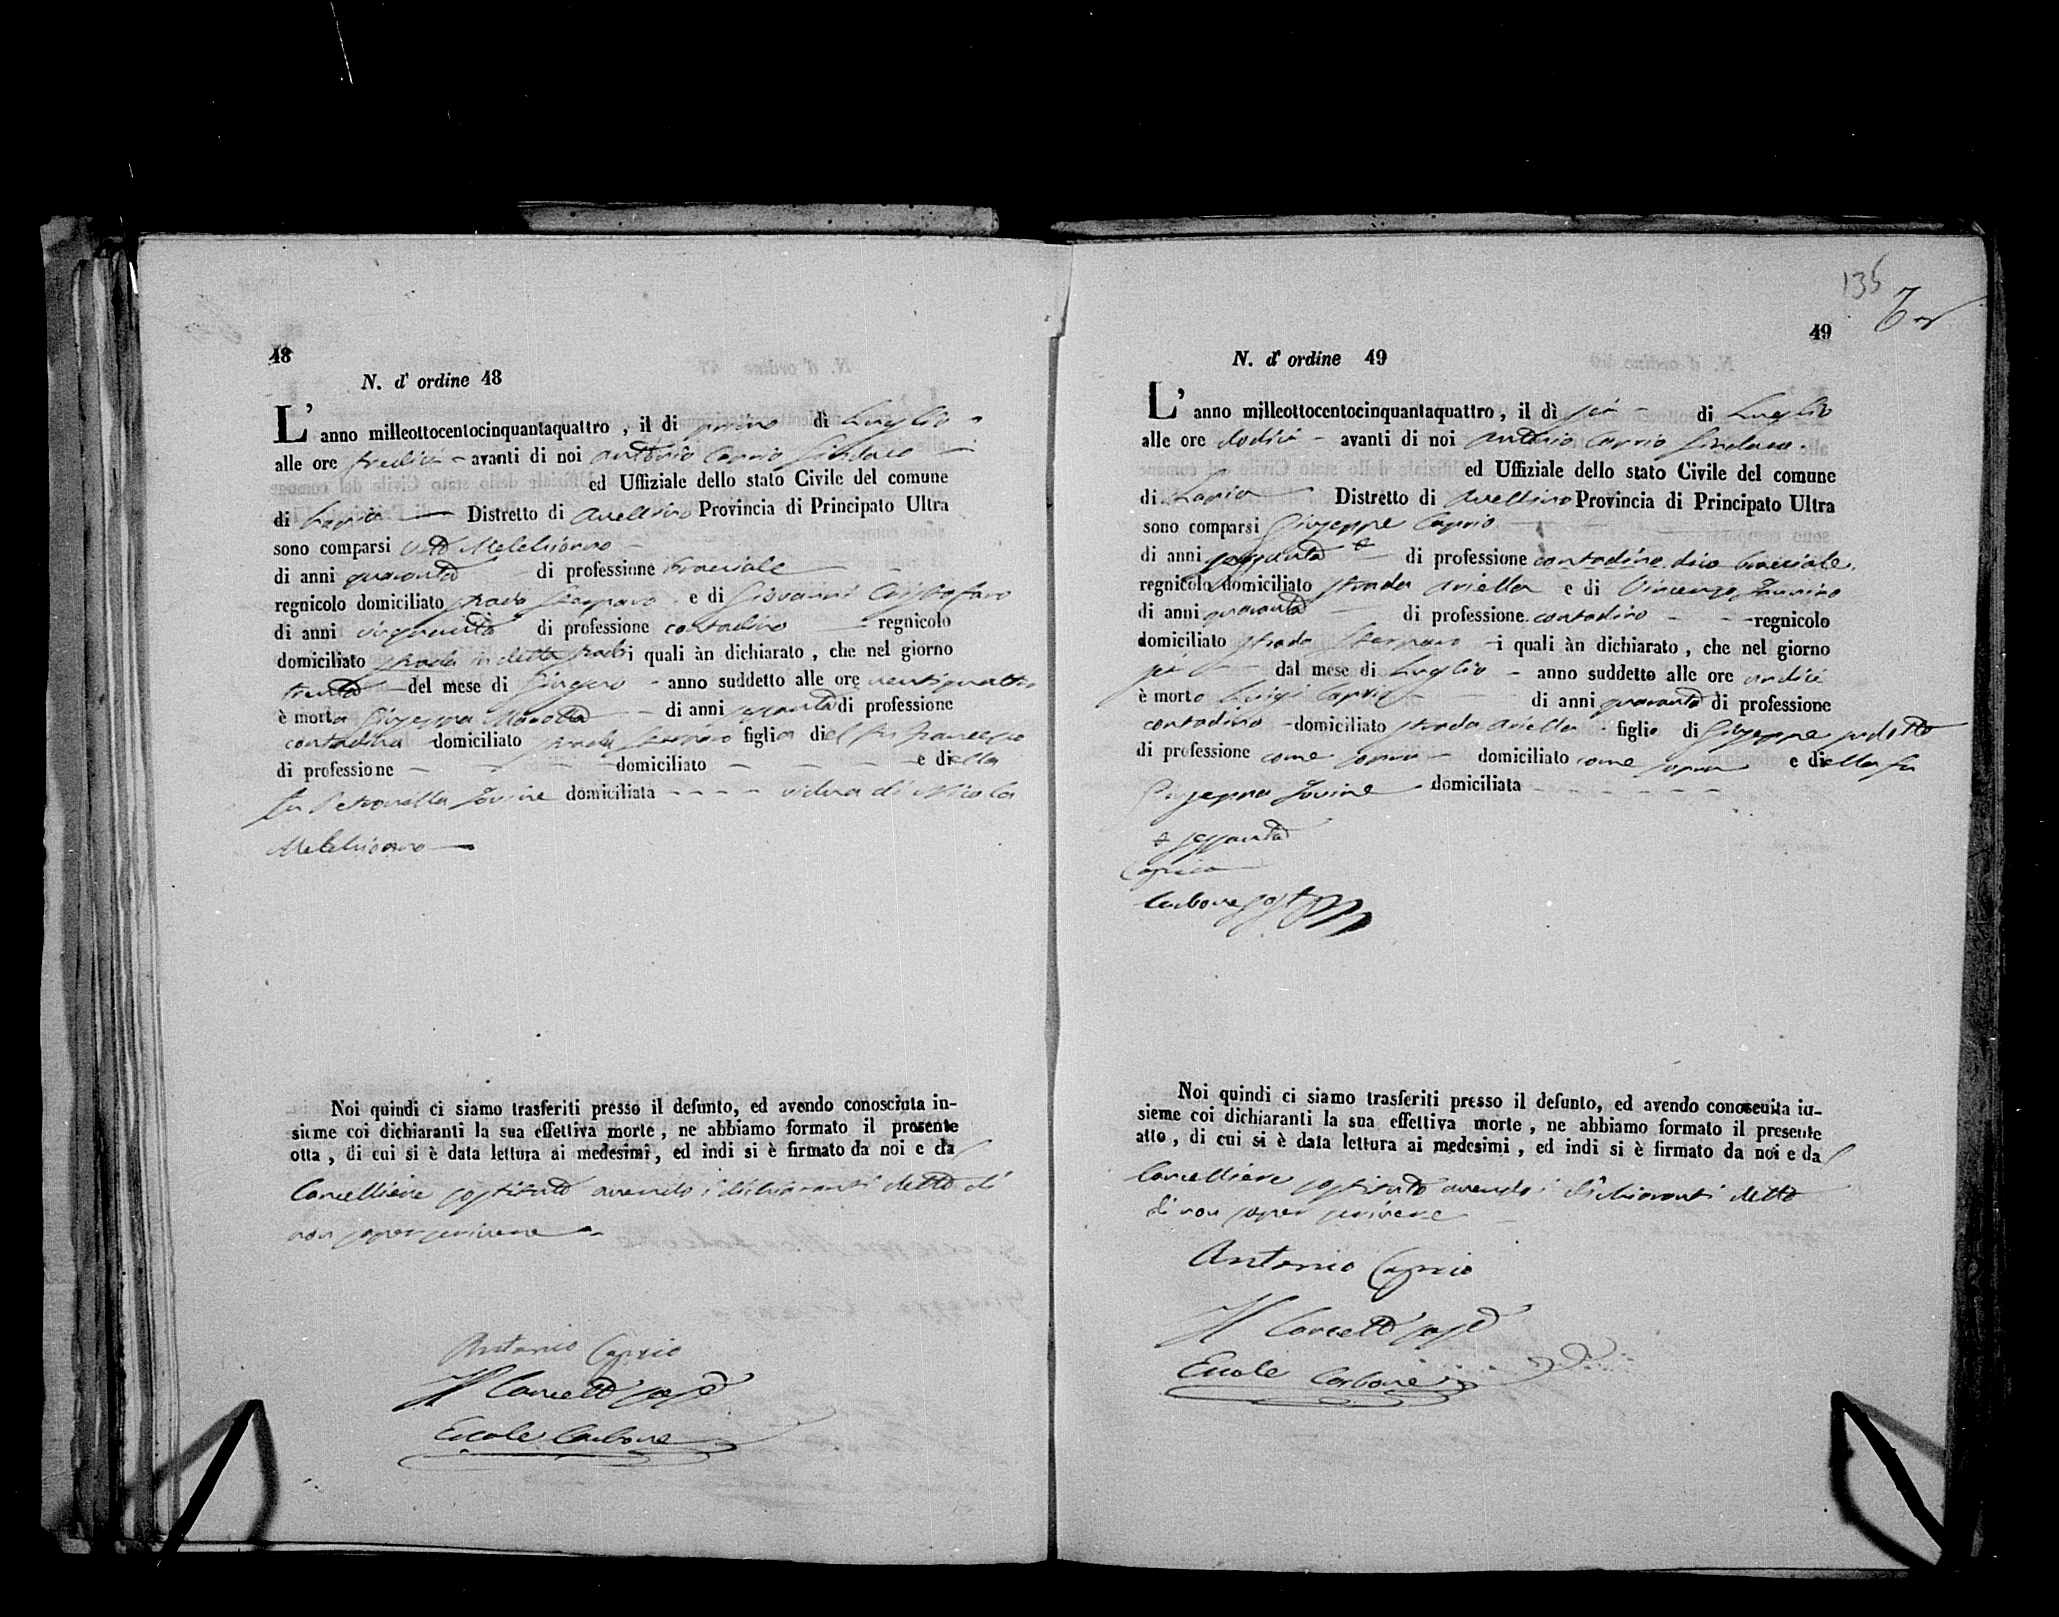 48
N. d' ordine 48
L' anno milleottocentocinquantaquattro , il di primo di Luglio
alle ore tredici - avanti di noi Antonio Caprio Sindaco
ed Uffiziale dello stato Civile del comune
di Lapio — Distretto di Avellino Provincia di Principato Ultra
sono comparsi Vito Melchiorno
di anni quaranta di professione bracciale
regnicolo domiciliato strada e di Giovanni Cristofaro
di anni cinquanta di professione contadino regnicolo
domiciliato strada in detta strada i quali àn dichiarato , che nel giorno
trenta del mese di Giugno - anno suddetto alle ore ventiquattro
è morta Giuseppa di anni sessanta di professione
contadina domiciliato strada figlia del fu Francesco
di professione - - - - domiciliato - - - - e della
fu Petronilla Iovine domiciliata - - - - vedova di Nicola
Melchiorno —
Noi quindi ci siamo trasferiti presso il defunto, ed avendo conosciuta in-
sieme coi dichiaranti la sua effettiva morte , ne abbiamo formato il presente
otta , di cui si è data lettura ai medesimi , ed indi si è firmato da noi e da
Cancelliere sostituto avendo i dichiaranti detto di
non saper scrivere
Antonio Caprio
Il Cancell.° sost.°
Ercole Carbone
135
49
N. d' ordine 49
L' anno milleottocentocinquantaquattro , il dì sei - di Luglio
alle ore dodici - avanti di noi Antonio Caprio Sindaco
ed Uffiziale dello stato Civile del comune
di Lapio — Distretto di Avellino Provincia di Principato Ultra
sono comparsi Giuseppe Caprio
di anni di professione contadino dico bracciale
regnicolo domiciliato strada Ariella e di Vincenzo
di anni quaranta di professione contadino - - - regnicolo
domiciliato strada - i quali àn dichiarato , che nel giorno
sei dal mese di Luglio - anno suddetto alle ore undici
è morto Luigi Caprio di anni quaranta di professione
contadino - domiciliato strada Ariella figlio di Giuseppe sudetto
di professione come sopra domiciliato come sopra e della fu
Giuseppa Iovine domiciliata - - - - - -
sessanta
Caprio
Carbone sost.
Noi quindi ci siamo trasferiti presso il defunto, ed avendo conosciuta in-
sieme coi dichiaranti la sua effettiva morte , ne abbiamo formato il presente
atto , di cui si è data lettura ai medesimi , ed indi si è firmato da noi e da
Cancelliere sostituto avendo i dichiaranti detto
di non saper scrivere
Antonio Caprio
Il Cancell.° sost.°
Ercole Carbone